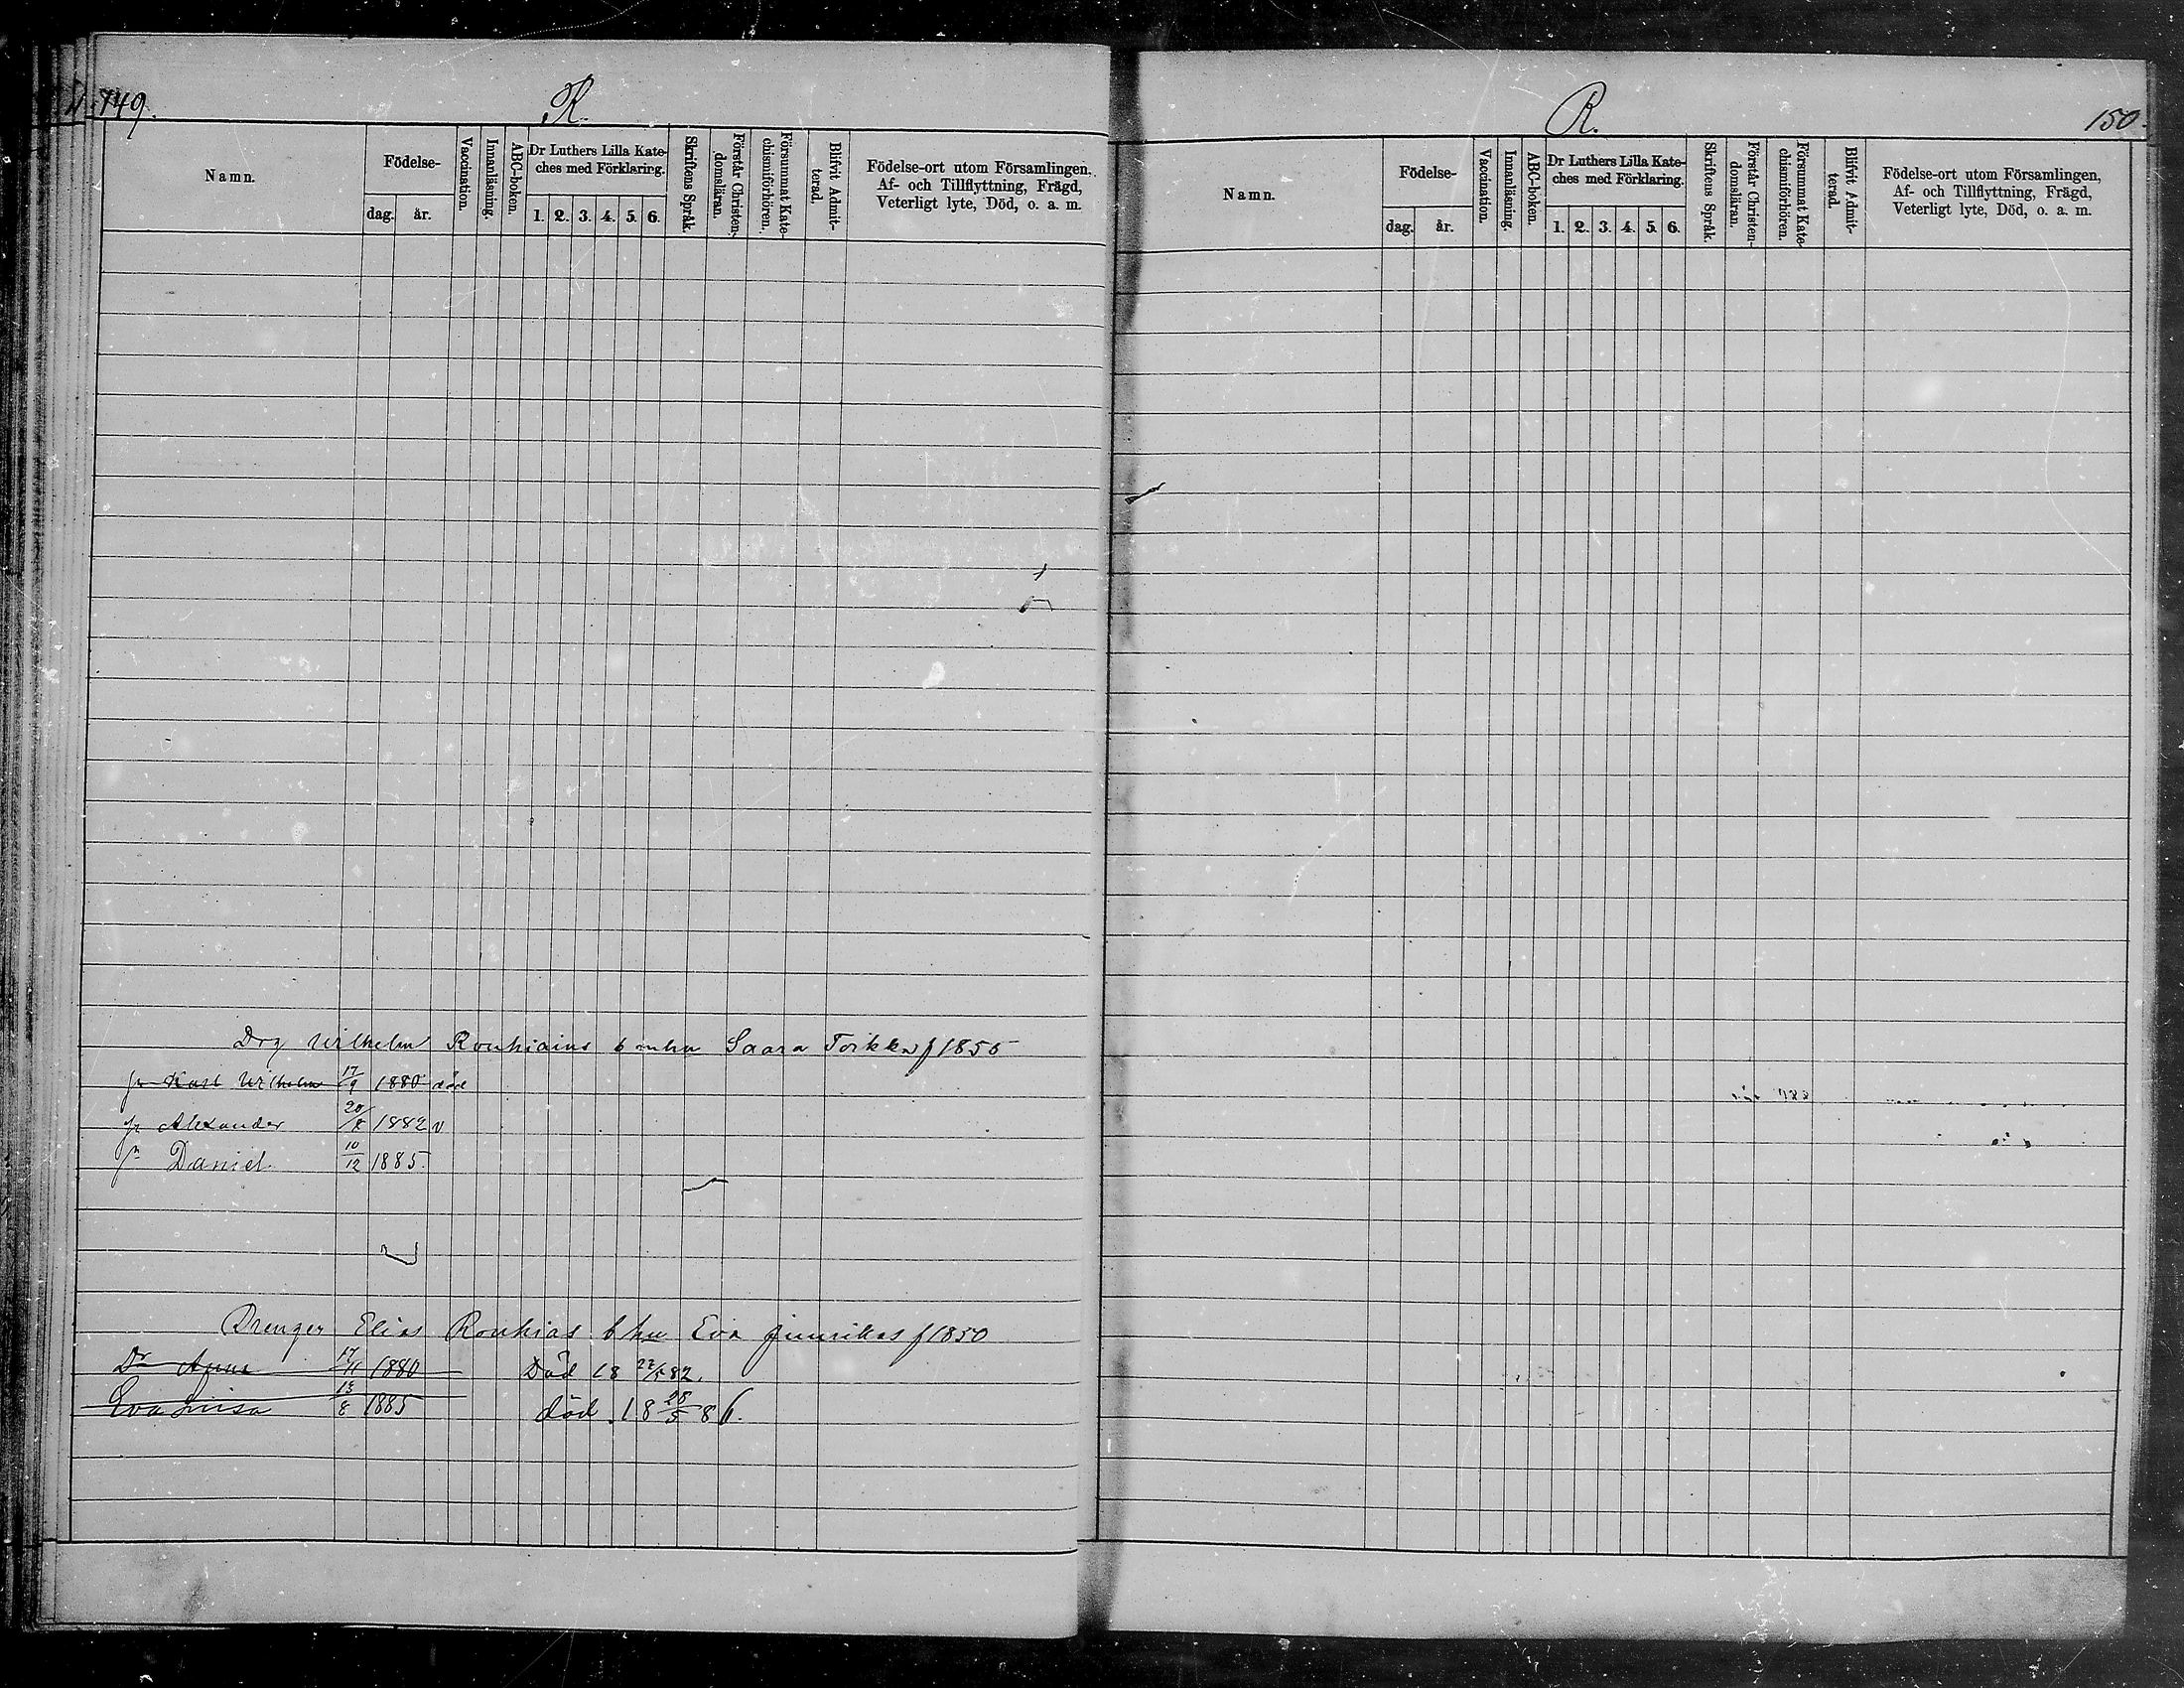 149.
R.
Namn.
Födelse-
dag.
år.
Vaccination.
Innanläsning.
ABC-boken.
Dr Luthers Lilla Kate-
ches med Förklaring.
1. 2. 3. 4. 5. 6.
Skriftens Språk.
Förstår Christen-
domsläran.
Försummat Kate-
chismiförhören.
Blifvit Admit-
terad.
Födelse-ort utom Församlingen.
Af- och Tillflyttning, Frägd,
Veterligt lyte, Död, o. a. m.
Drg Wilhelm Rouhiains Saara Torkka f 1855
Karl Wilhelm 17/9 1880 död
Alexander 20/8 1882 v
Daniel 10/12 1885.
Drenger Elias Rouhias Eva f 1850
Dr Anna 17/11 1880 Död 18 22/5 82.
Eva Luisa 13/8 1885 död 18 28/5 86.
R.
150.
Namn.
Födelse-
dag.
år.
Vaccination.
Innanläsning.
ABC-boken.
Dr Luthers Lilla Kate-
ches med Förklaring.
1. 2. 3. 4. 5. 6.
Skriftens Språk.
Förstår Christen-
domsläran.
Försummat Kate-
chismiförhören.
Blifvit Admit-
terad.
Födelse-ort utom Församlingen,
Af- och Tillflyttning, Frägd,
Veterligt lyte, Död, o. a. m.